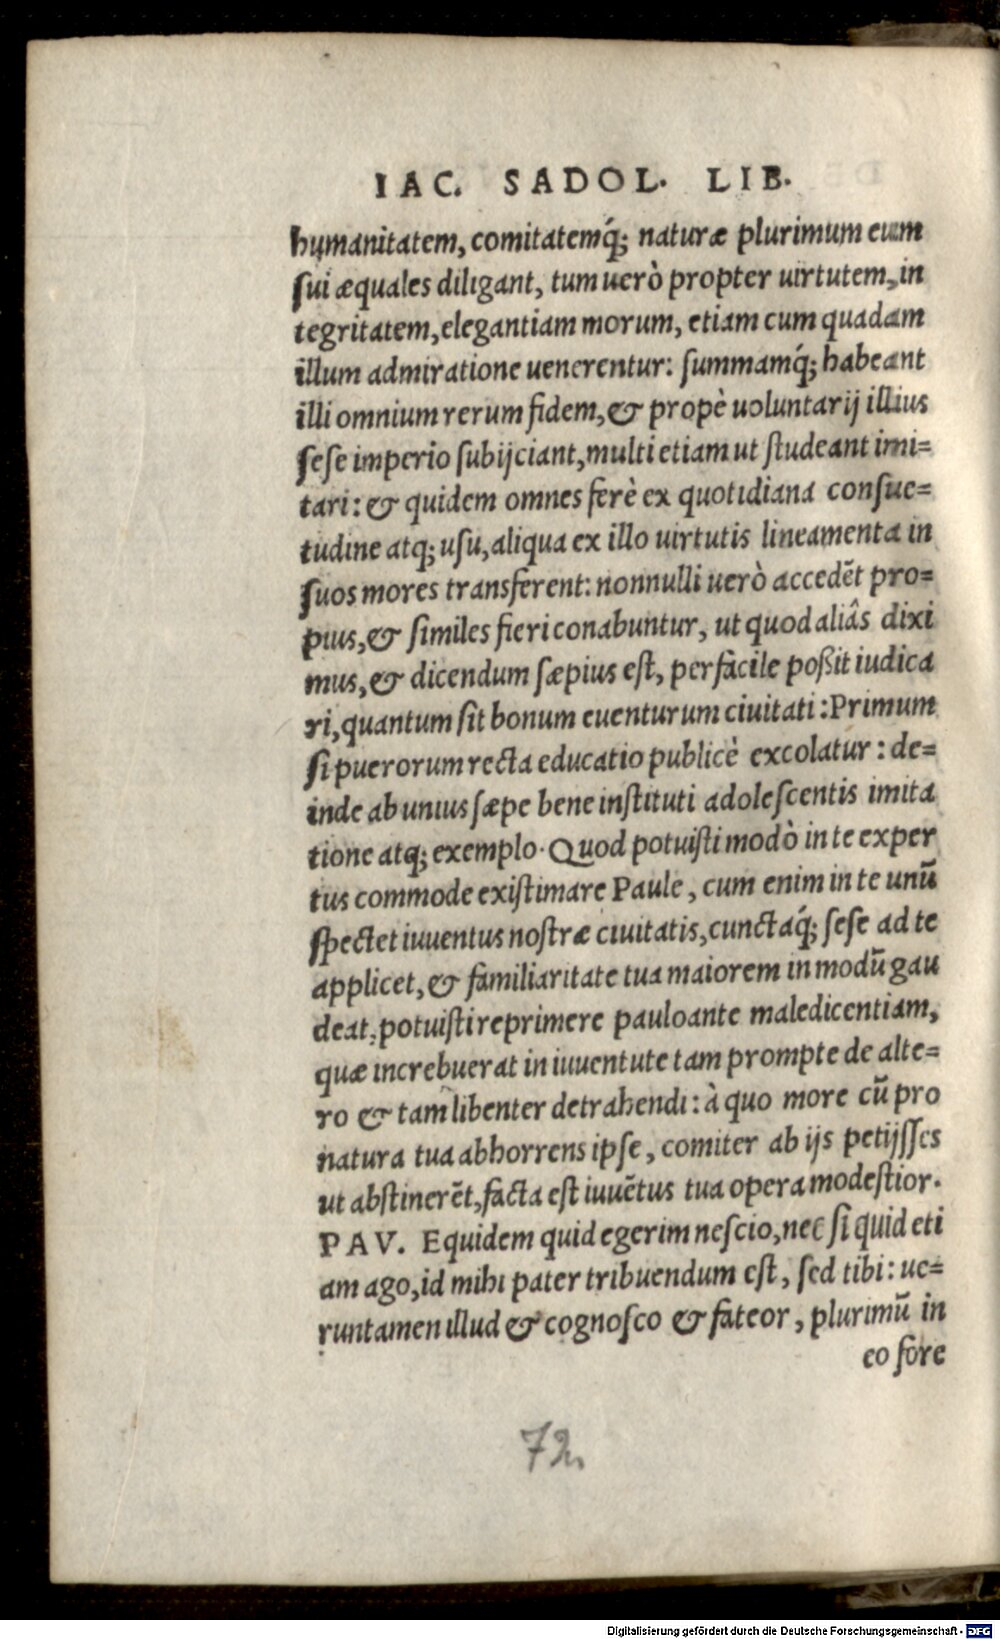 IAC. SADOL. LIB.
humanitatem, comitatemq́; naturæ plurimum eum
sui æquales diligant, tum uerò propter uirtutem, in
tegritatem, elegantiam morum, etiam cum quadam
illum admiratione uenerentur: summamq́; habeant
illi omnium rerum fidem, & propè uoluntarij illius
sese imperio subijciant, multi etiam ut studeant imi-
tari: & quidem omnes ferè ex quotidiana consue-
tudine atq; usu, aliqua ex illo uirtutis lineamenta in
suos mores transferent: nonnulli uerò accedẽt pro-
pius, & similes fieri conabuntur, ut quod aliâs dixi
mus, & dicendum sæpius est, per facile poßit iudica
ri, quantum sit bonum euenturum ciuitati: Primum
si puerorum recta educatio publicè excolatur: de-
inde ab unius sæpe bene instituti adolescentis imita
tione atq; exemplo. Quod potuisti modò in te exper
tus commode existimare Paule, cum enim in te unũ
spectet iuuentus nostræ ciuitatis, cunctaq́; sese ad te
applicet, & familiaritate tua maiorem in modũ gau
deat, potuisti reprimere pauloante maledicentiam,
quæ increbuerat in iuuentute tam prompte de alte-
ro & tam libenter detrahendi: à quo more cũ pro
natura tua abhorrens ipse, comiter ab ijs petijsses
ut abstinerẽt, facta est iuuẽtus tua opera modestior.
PAV. Equidem quid egerim nescio, nec si quid eti
am ago, id mihi pater tribuendum est, sed tibi: ue-
runtamen illud & cognosco & fateor, plurimũ in
eo fore
72.
Digitalisierung gefördert durch die Deutsche Forschungsgemeinschaft - DFG